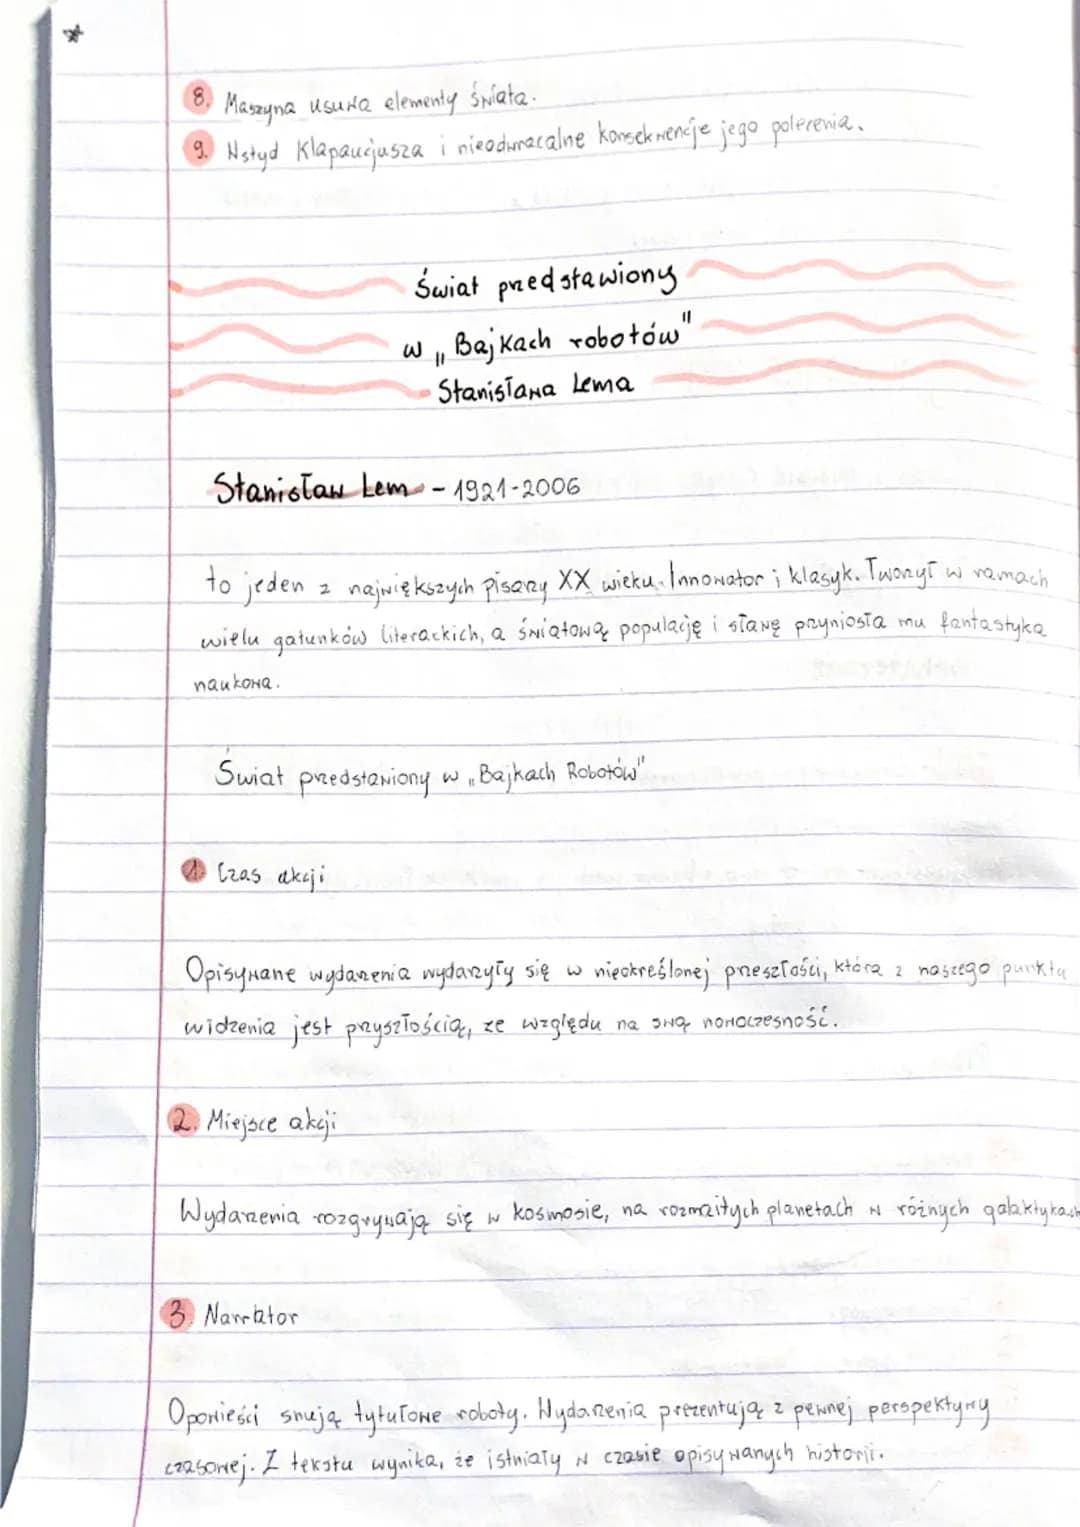 8. Maszyna usuwa elementy świata.
9. Wstyd Klapaucjusza i nieodwracalne konsekwencje jego polecenia.
Świat przedstawiony
w „Bajkach robotów"
Stanisława Lema
Stanisław Lem - 1921-2006
to jeden z największych pisarzy XX wieku. Innowator i klasyk. Tworzył w ramach
wielu gatunków literackich, a światową populację i sławę przyniosła mu fantastyka
naukowa.
Świat przedstawiony w „Bajkach Robotów"
1. Czas akcji
Opisywane wydarzenia wydarzyły się w nieokreślonej przeszłości, która z naszego punktu
widzenia jest przyszłością, ze względu na swą nowoczesność.
2. Miejsce akcji
Wydarzenia rozgrywają się w kosmosie, na rozmaitych planetach w różnych galaktykach
3. Narrator
Opowieści snują tytułowe roboty. Wydarzenia prezentują z pewnej perspektywy
czasowej. Z tekstu wynika, że istniały w czasie opisywanych historii.